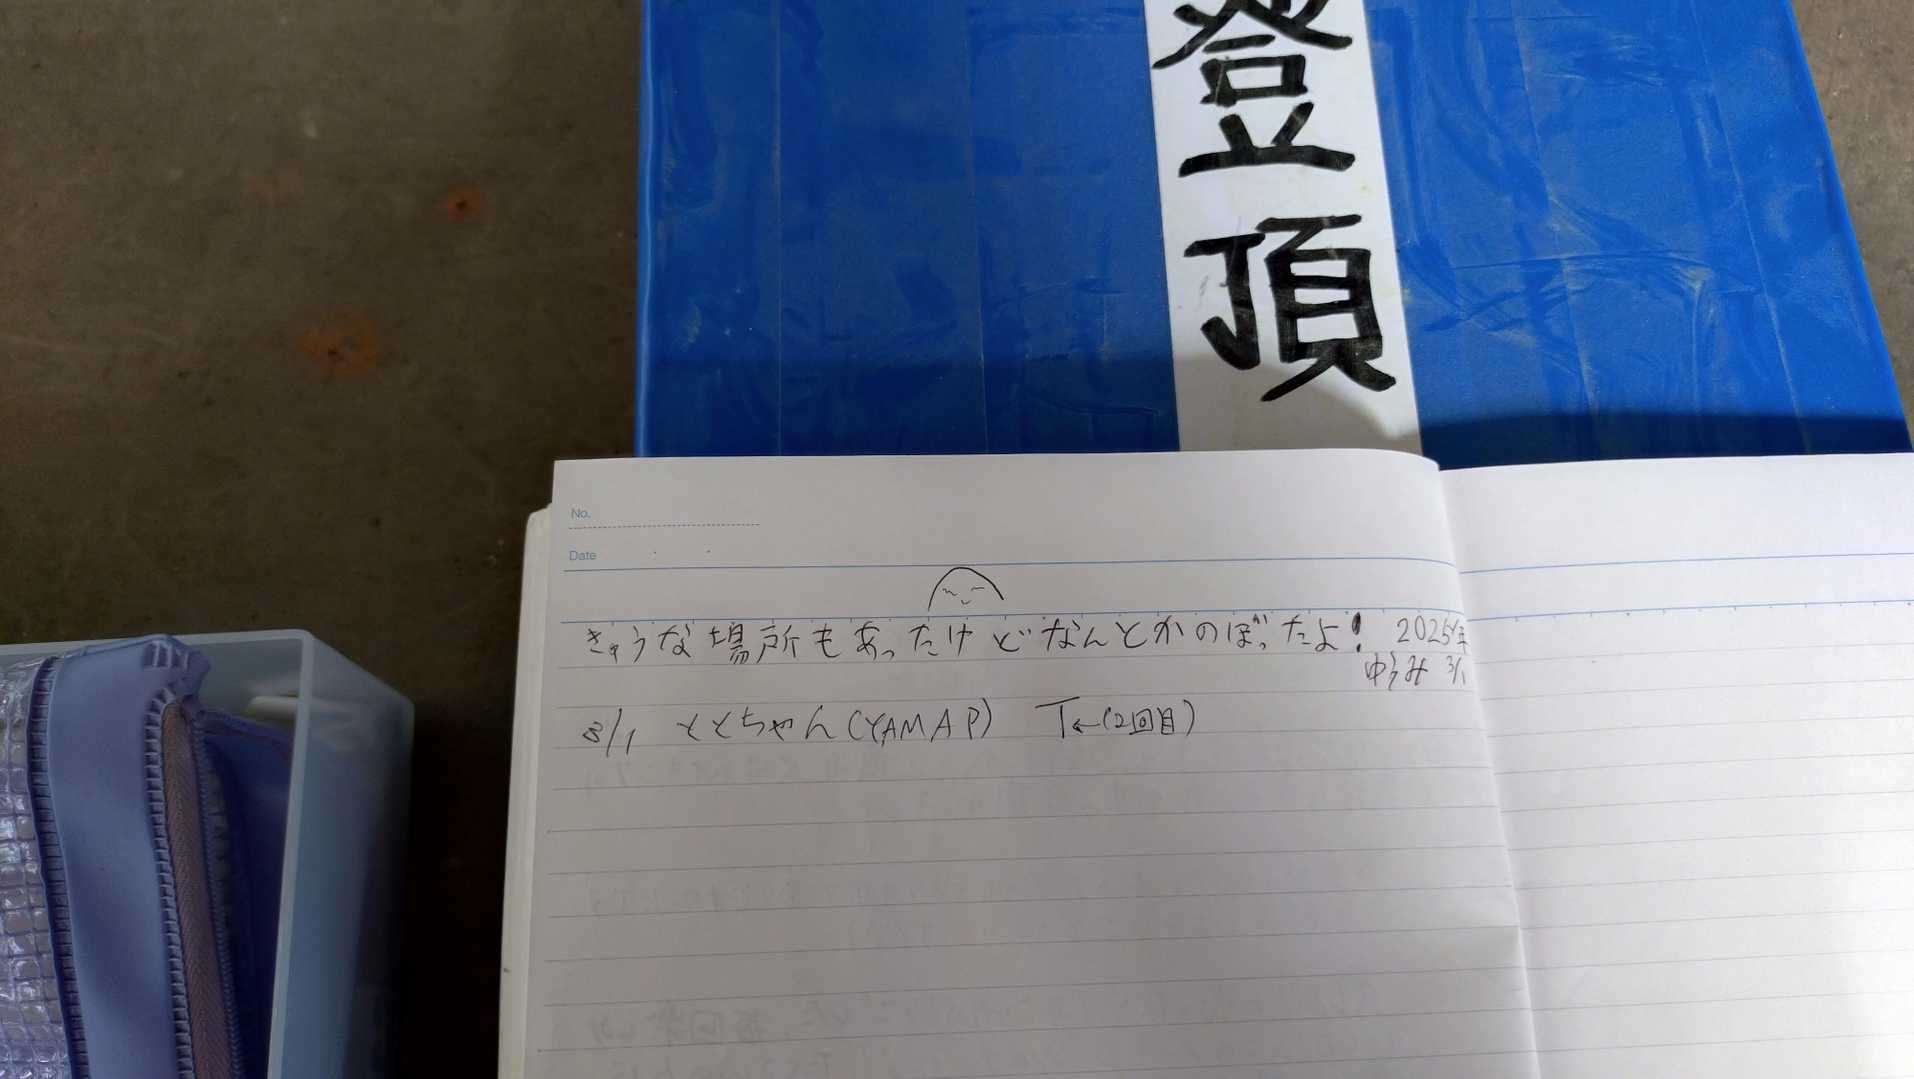 登頂
No.
Date
きゅうな場所もあったけどなんとかのぼったよ! 2025年
ゆうみ 3/1
3/1 ととちゃん(YAMAP) T←(2回目)